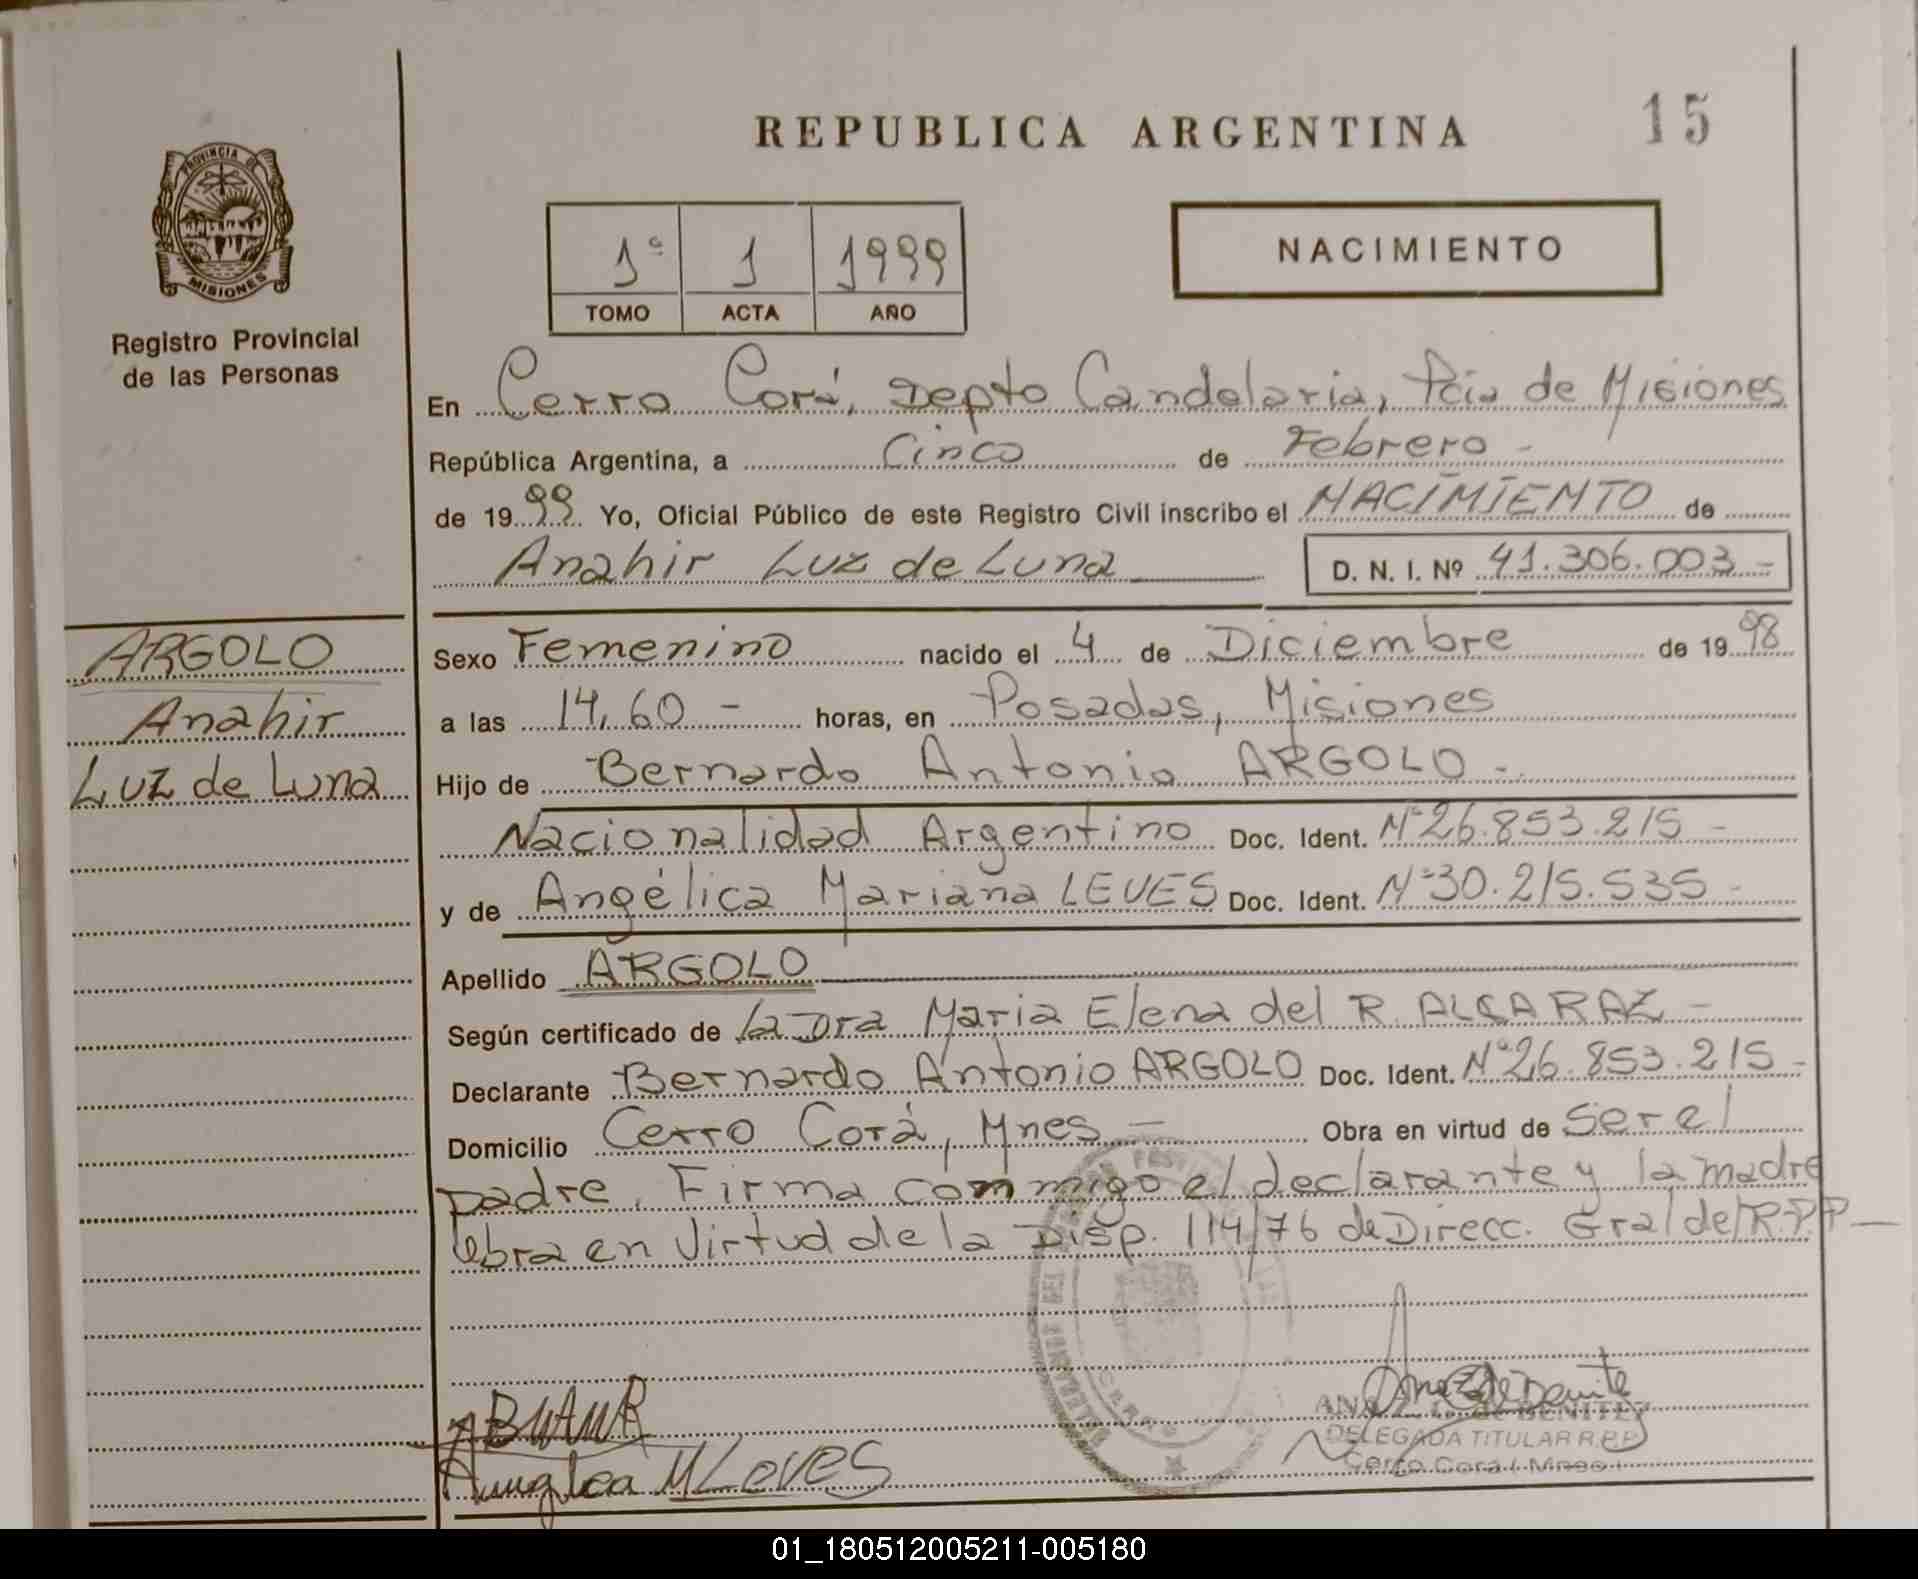 REPUBLICA ARGENTINA
15
PROVINCIA DE
MISIONES
Registro Provincial
de las Personas
1º 1 1999
TOMO ACTA AÑO
NACIMIENTO
En Cerro Corá, Depto Candelaria, Pcia de Misiones
República Argentina, a Cinco de Febrero -
de 1999 Yo, Oficial Público de este Registro Civil inscribo el NACIMIENTO de
Anahir Luz de Luna
D. N. I. Nº 41.306.003 -
ARGOLO
Anahir
Luz de Luna
Sexo Femenino nacido el 4 de Diciembre de 1998
a las 14,60 - horas, en Posadas, Misiones
Hijo de Bernardo Antonio ARGOLO -
Nacionalidad Argentino Doc. Ident. Nº 26.853.215 -
y de Angélica Mariana LEVES Doc. Ident. Nº 30.215.535 -
Apellido ARGOLO
Según certificado de la Dra Maria Elena del R. ALCARAZ -
Declarante Bernardo Antonio ARGOLO Doc. Ident. Nº 26.853.215 -
Domicilio Cerro Corá, Mnes - Obra en virtud de ser el
padre. Firma conmigo el declarante y la madre
obra en virtud de la Disp. 114/76 de Direcc. Gral del R.P.P -
DE BENITEZ
DELEGADA TITULAR R.P.P.
Cerro Corá (Mnes)
M Leves
01_180512005211-005180